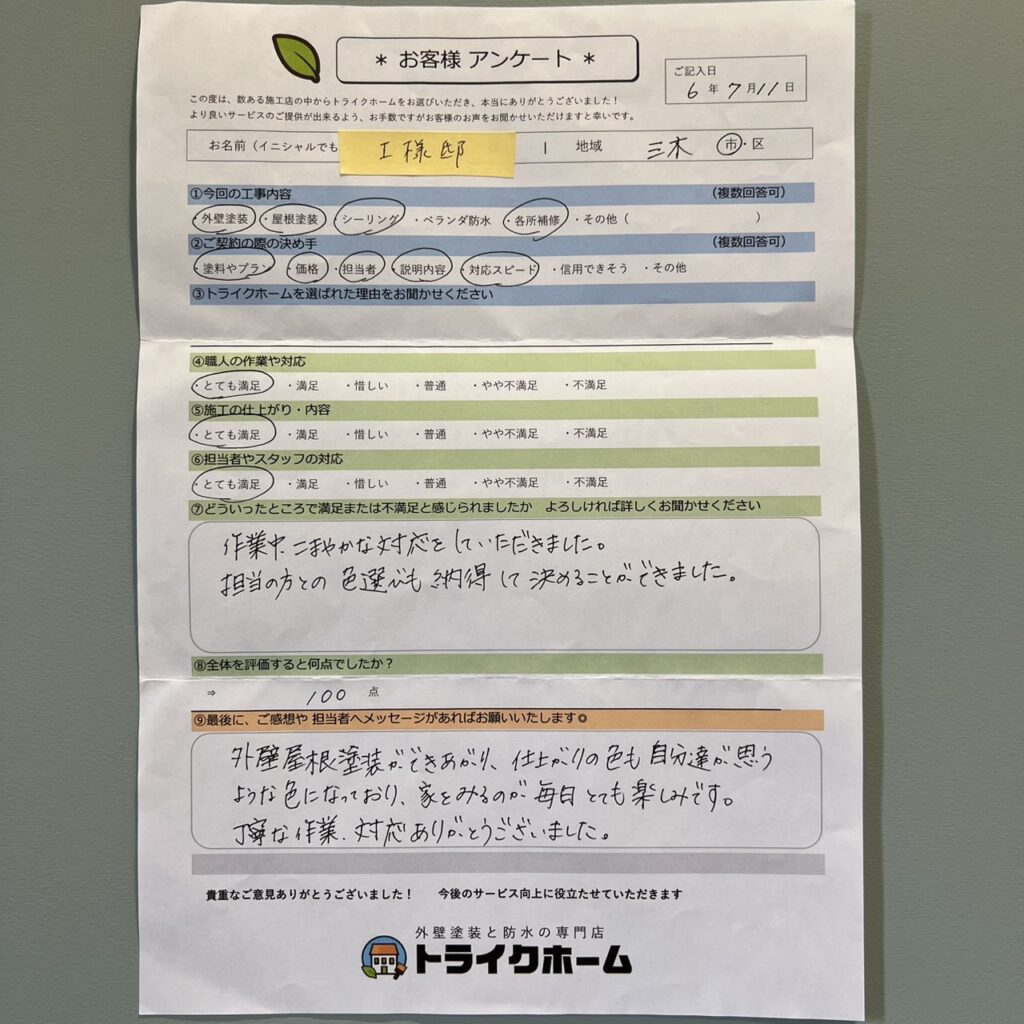 * お客様 アンケート *
ご記入日
6年 7月11日
この度は、数ある施工店の中からトライクホームをお選びいただき、本当にありがとうございました！
より良いサービスのご提供が出来るよう、お手数ですがお客様のお声をお聞かせいただけますと幸いです。
お名前（イニシャルでも I様邸 地域 三木 市・区
①今回の工事内容 （複数回答可）
・外壁塗装 ・屋根塗装 ・シーリング ・ベランダ防水 ・各所補修 ・その他（ ）
②ご契約の際の決め手 （複数回答可）
・塗料やプラン ・価格 ・担当者 ・説明内容 ・対応スピード ・信用できそう ・その他
③トライクホームを選ばれた理由をお聞かせください
④職人の作業や対応
・とても満足 ・満足 ・惜しい ・普通 ・やや不満足 ・不満足
⑤施工の仕上がり・内容
・とても満足 ・満足 ・惜しい ・普通 ・やや不満足 ・不満足
⑥担当者やスタッフの対応
・とても満足 ・満足 ・惜しい ・普通 ・やや不満足 ・不満足
⑦どういったところで満足または不満足と感じられましたか よろしければ詳しくお聞かせください
作業中、こまやかな対応をしていただきました。
担当の方との色選びも納得して決めることができました。
⑧全体を評価すると何点でしたか？
⇒ 100 点
⑨最後に、ご感想や 担当者へメッセージがあればお願いいたします◎
外壁屋根塗装ができあがり、仕上がりの色も自分達が思う
ような色になっており、家をみるのが毎日とても楽しみです。
丁寧な作業、対応ありがとうございました。
貴重なご意見ありがとうございました！ 今後のサービス向上に役立たせていただきます
外壁塗装と防水の専門店
トライクホーム